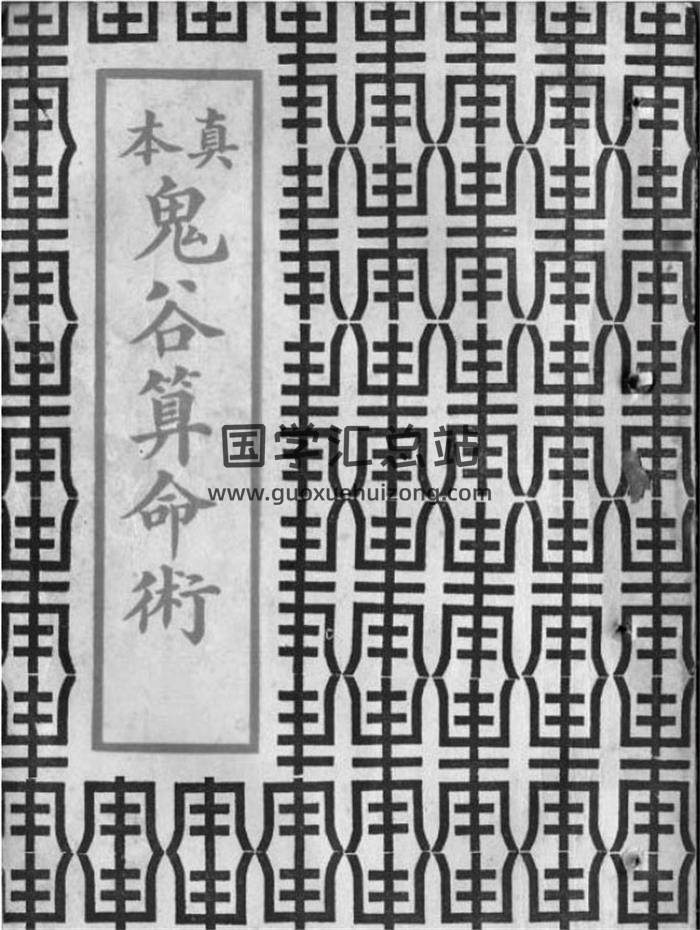 真本
鬼谷算命術
国学汇总站
www.guoxuehuizong.com